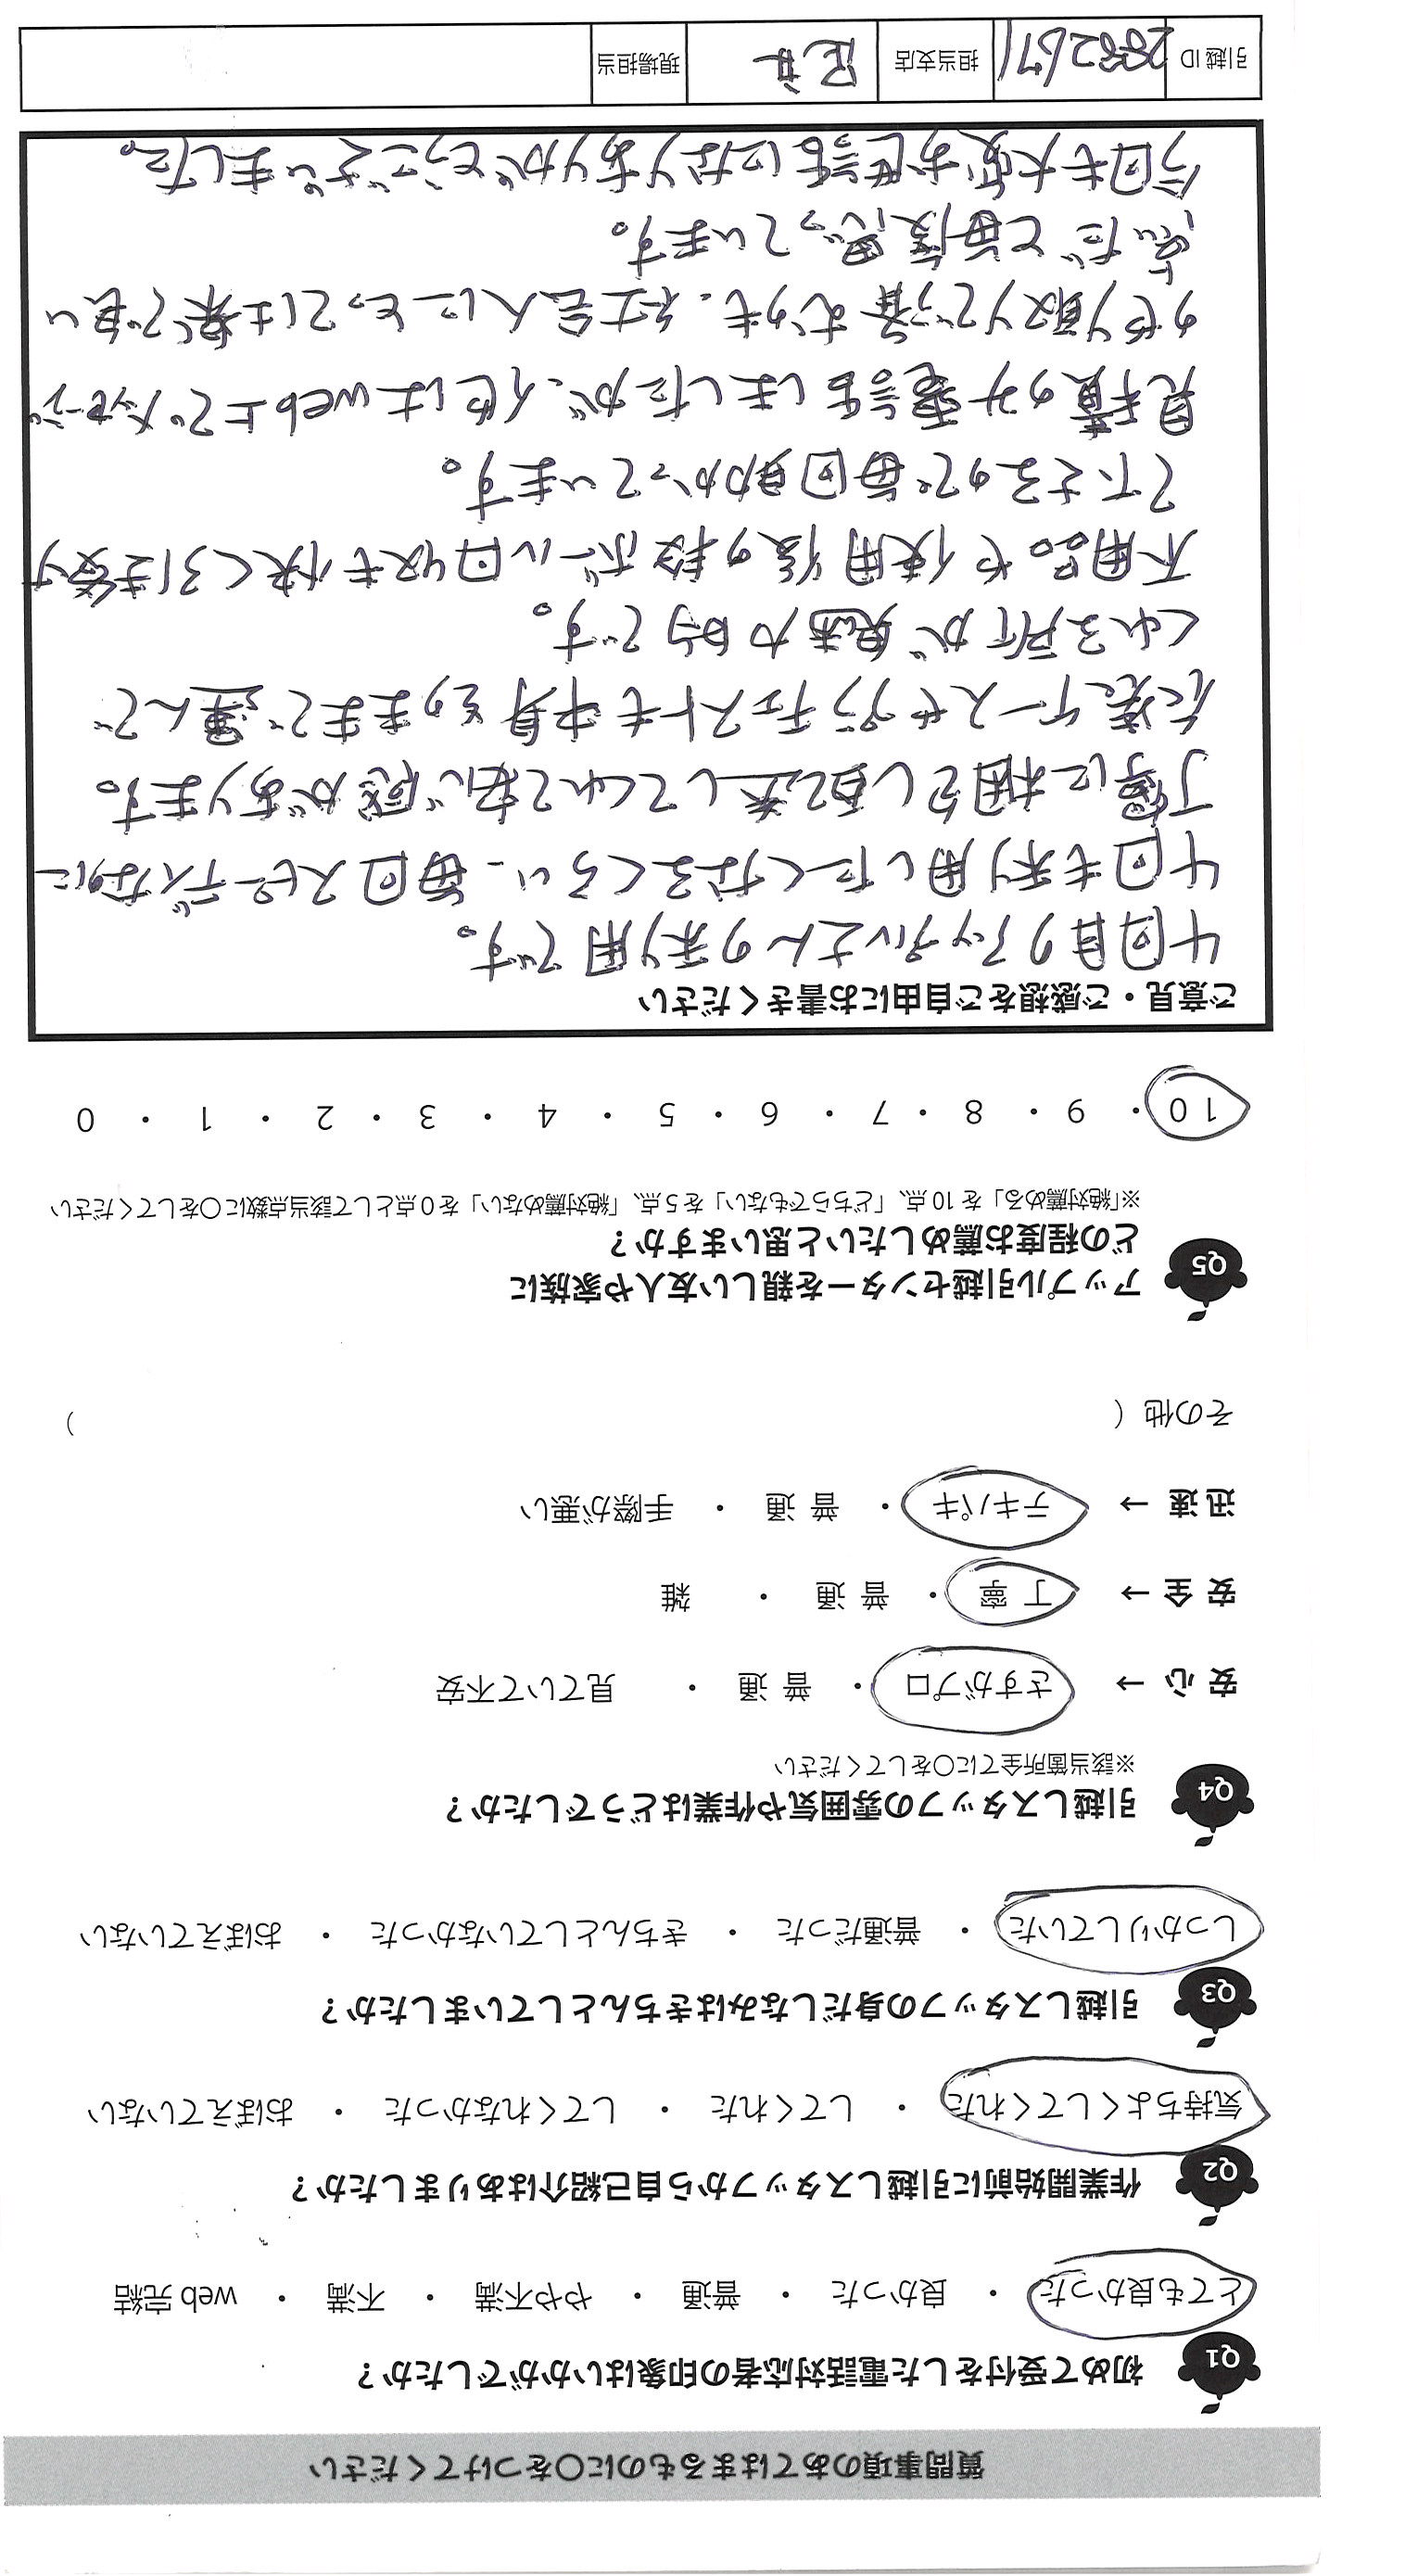 質問事項のあてはまるものに〇をつけてください
Q1 初めて受付をした電話対応者の印象はいかがでしたか？
とても良かった ・ 良かった ・ 普通 ・ やや不満 ・ 不満 ・ web 完結
Q2 作業開始前に引越しスタッフから自己紹介はありましたか？
気持ちよくしてくれた ・ してくれた ・ してくれなかった ・ おぼえていない
Q3 引越しスタッフの身だしなみはきちんとしていましたか？
しっかりしていた ・ 普通だった ・ きちんとしていなかった ・ おぼえていない
Q4 引越しスタッフの雰囲気や作業はどうでしたか？
※該当箇所全てに〇をしてください
安 心 → さすがプロ ・ 普 通 ・ 見ていて不安
安 全 → 丁 寧 ・ 普 通 ・ 雑
迅 速 → テキパキ ・ 普 通 ・ 手際が悪い
その他（ ）
Q5 アップル引越センターを親しい友人や家族に
どの程度お薦めしたいと思いますか？
※「絶対薦める」を 10 点、「どちらでもない」を 5 点、「絶対薦めない」を 0 点として該当点数に〇をしてください
10 ・ 9 ・ 8 ・ 7 ・ 6 ・ 5 ・ 4 ・ 3 ・ 2 ・ 1 ・ 0
ご意見・ご感想をご自由にお書きください
4回目のアップルさんの利用です。
4回も利用したくなるくらい、毎回スピーディなのに
丁寧に梱包し配送してくれて安心感があります。
衣装ケースやプラチェストも中身そのままで運んで
くれる所が魅力的です。
不用品や使用後の段ボール回収も快く引き受け
て下さるので毎回助かっています。
見積のみ電話しましたが、他はweb上でメッセージ
のやり取りで済むのも、社会人にとっては楽で良い
点だと毎度思っています。
今回も大変お世話になりありがとうございました。
引越 ID 2882671 担当支店 現場担当